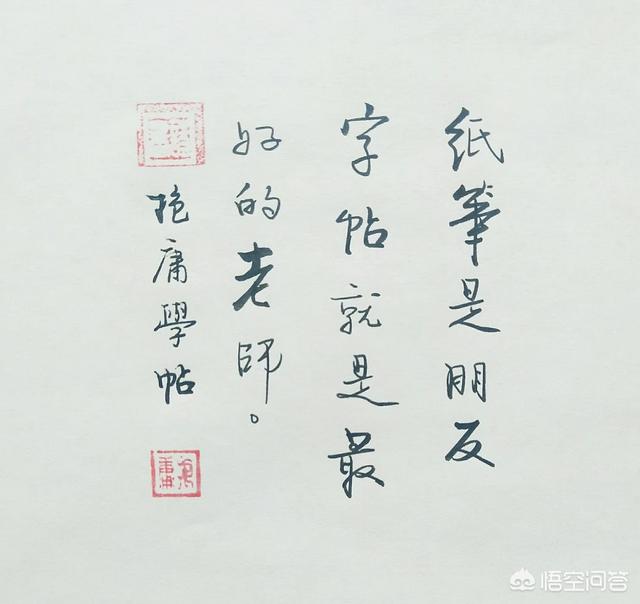 纸筆是朋友
字帖就是最
好的老師。
抱庸學帖
悟空问答